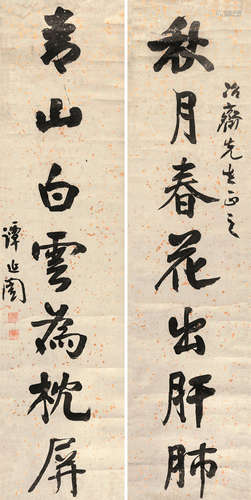 秋月春花出肝肺
冶齋先生正之
青山白雲為枕屏
譚延闓